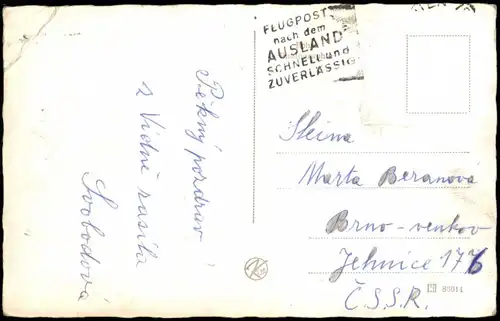 FLUGPOST
nach dem
AUSLAND
SCHNELL und
ZUVERLÄSSIG
Pěkný pozdrav
z Vídně zasílá
Svobodová
Marta Beranová
Brno-venkov
Jehnice 176
Č.S.S.R.
86014